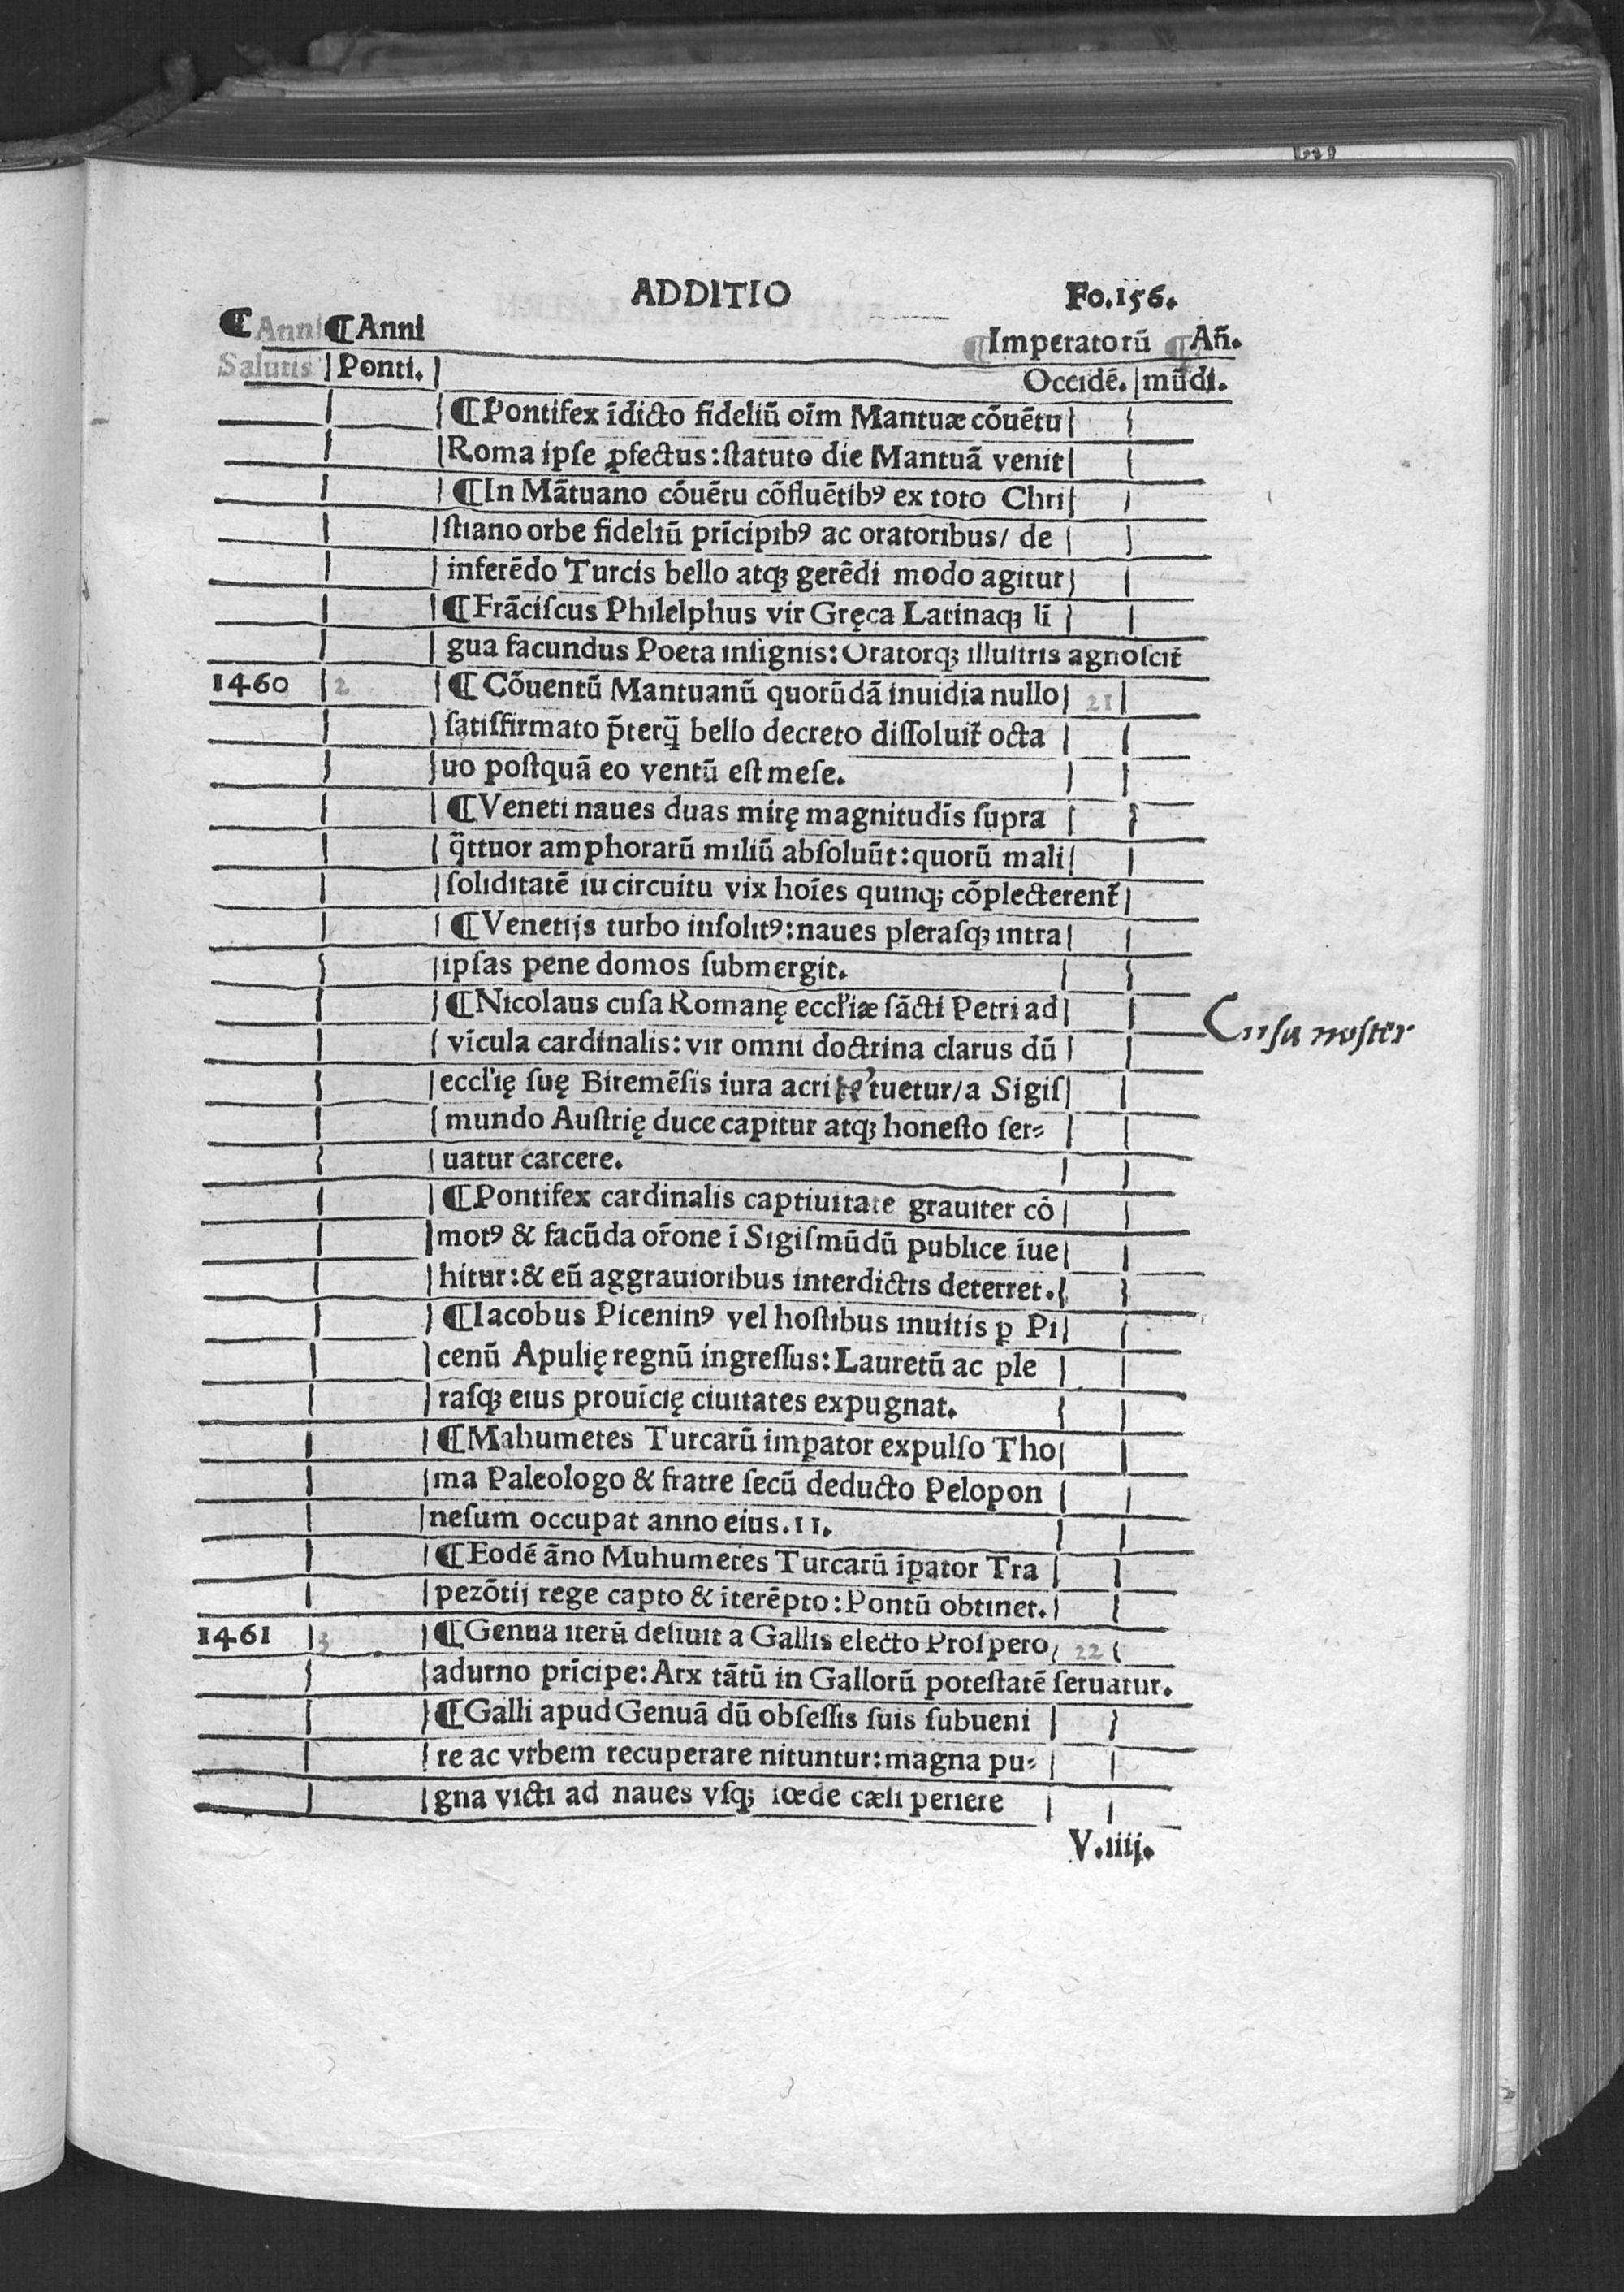 ADDITIO Fo.156.
¶ Anni ¶ Anni ¶ Imperatorũ ¶ Añ.
Salutis Ponti. Occidẽ. mũdi.
¶ Pontifex ĩdicto fideliũ oĩm Mantuæ cõuẽtu
Roma ipſe ꝓfectus: ſtatuto die Mantuã venit
¶ In Mãtuano cõuẽtu cõfluẽtibꝰ ex toto Chri
ſtiano orbe fideliũ prĩcipibꝰ ac oratoribus/ de
inferẽdo Turcis bello atqꝫ gerẽdi modo agitur
¶ Frãciſcus Philelphus vir Gręca Latinaqꝫ lĩ
gua facundus Poeta inſignis: Oratorqꝫ illuſtris agnoſcit᷑
1460 2 ¶ Cõuentũ Mantuanũ quorũdã inuidia nullo 21
ſatisfirmato p̃terq̈̃ bello decreto diſſoluit᷑ octa
uo poſtquã eo ventũ eſt meſe.
¶ Veneti naues duas mirę magnitudĩs ſupra
q̈ttuor amphorarũ miliũ abſoluũt: quorũ mali
ſoliditatẽ iu circuitu vix hoĩes quinqꝫ cõplecterent᷑
¶ Venetijs turbo inſolitꝰ: naues pleraſqꝫ intra
ipſas pene domos ſubmergit.
¶ Nicolaus cuſa Romanę eccl'iæ ſãcti Petri ad
vĩcula cardinalis: vir omni doctrina clarus dũ
Cuſa noster
eccl'ię ſuę Biremẽſis iura acrite᷑ tuetur/a Sigiſ
mundo Auſtrię duce capitur atqꝫ honeſto ſer⸗
uatur carcere.
¶ Pontifex cardinalis captiuitate grauiter cõ
motꝰ & facũda or̃one ĩ Sigiſmũdũ publice ĩue
hitur: & eũ aggrauioribus interdictis deterret.
¶ Iacobus Piceninꝰ vel hoſtibus inuitis ꝑ Pi
cenũ Apulię regnũ ingreſſus: Lauretũ ac ple
raſqꝫ eius prouĩcię ciuitates expugnat.
¶ Mahumetes Turcarũ imꝑator expulſo Tho
ma Paleologo & fratre ſecũ deducto Pelopon
neſum occupat anno eius.11.
¶ Eodẽ ãno Muhumetes Turcarũ ĩꝑator Tra
pezõtij rege capto & ĩterẽpto: Pontũ obtinet.
1461 3 ¶ Genua iterũ deſiuit a Gallis electo Proſpero 22
adurno prĩcipe: Arx tãtũ in Gallorũ poteſtatẽ ſeruatur.
¶ Galli apud Genuã dũ obſeſſis ſuis ſubueni
re ac vrbem recuperare nituntur: magna pu⸗
gna victi ad naues vſqꝫ fœde cæſi periere
V.iiij.